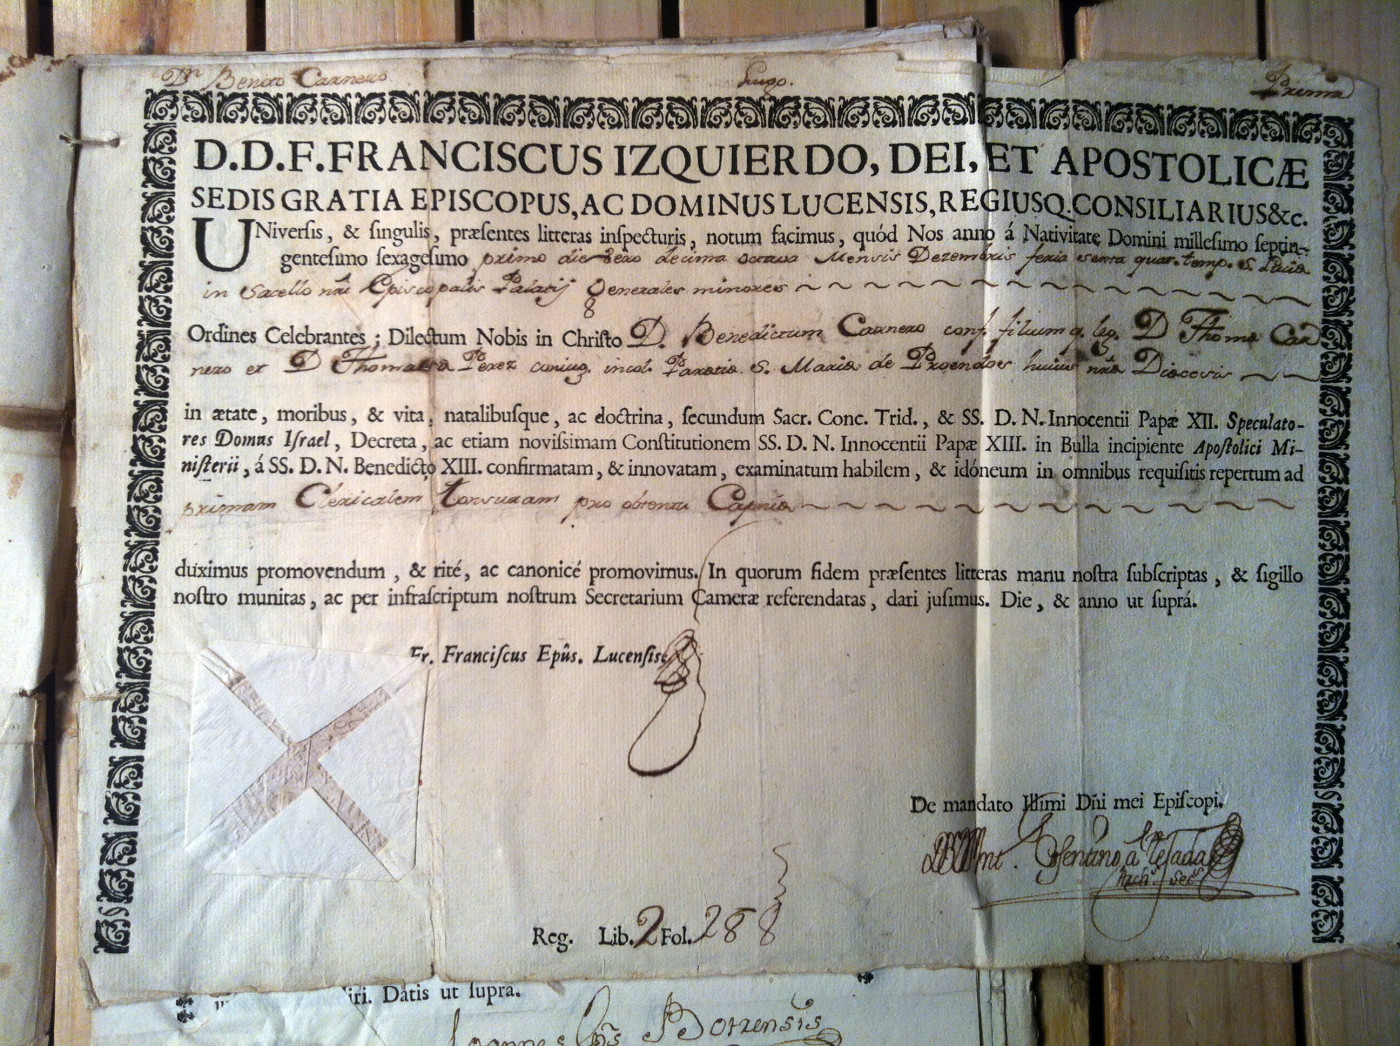 Dn Benito Carnero Lugo. Prima
D.D.F.FRANCISCUS IZQUIERDO, DEI, ET APOSTOLICÆ
SEDIS GRATIA EPISCOPUS, AC DOMINUS LUCENSIS, REGIUSQ. CONSILIARIUS &c.
UNiversis, & singulis, præsentes litteras inspecturis, notum facimus, quód Nos anno á Nativitate Domini millesimo septin-
gentesimo sexagesimo primo die vero decima octava Mensis Dezembris feria sexta quat. temp. S. Lucia
in Sacello nri Episcopalis Palatij Generales minores
Ordines Celebrantes; Dilectum Nobis in Christo D. Benedictum Carnero conf. filium q. leg. D Thome Car
nero et D Thomasa Perez coniug. incol. Paratia S. Maria de Proendos huius nra Diocesis
in ætate, moribus, & vita, natalibusque, ac doctrina, secundum Sacr. Conc. Trid., & SS. D. N. Innocentii Papæ XII. Speculato-
res Domus Israel, Decreta, ac etiam novissimam Constitutionem SS. D. N. Innocentii Papæ XIII. in Bulla incipiente Apostolici Mi-
nisterii, á SS. D. N. Benedicto XIII. confirmatam, & innovatam, examinatum habilem, & idóneum in omnibus requisitis repertum ad
primam Clericalem tonsuram pro obtentu Capnia
duximus promovendum, & rité, ac canonicé promovimus. In quorum fidem præsentes litteras manu nostra subscriptas, & sigillo
nostro munitas, ac per infrascriptum nostrum Secretarium Cameræ referendatas, dari jusimus. Die, & anno ut suprá.
Fr. Franciscus Epûs. Lucensis
De mandato Illmi Dñi mei Episcopi.
Reg. Lib. 2 Fol. 288
iri. Datis ut supra.